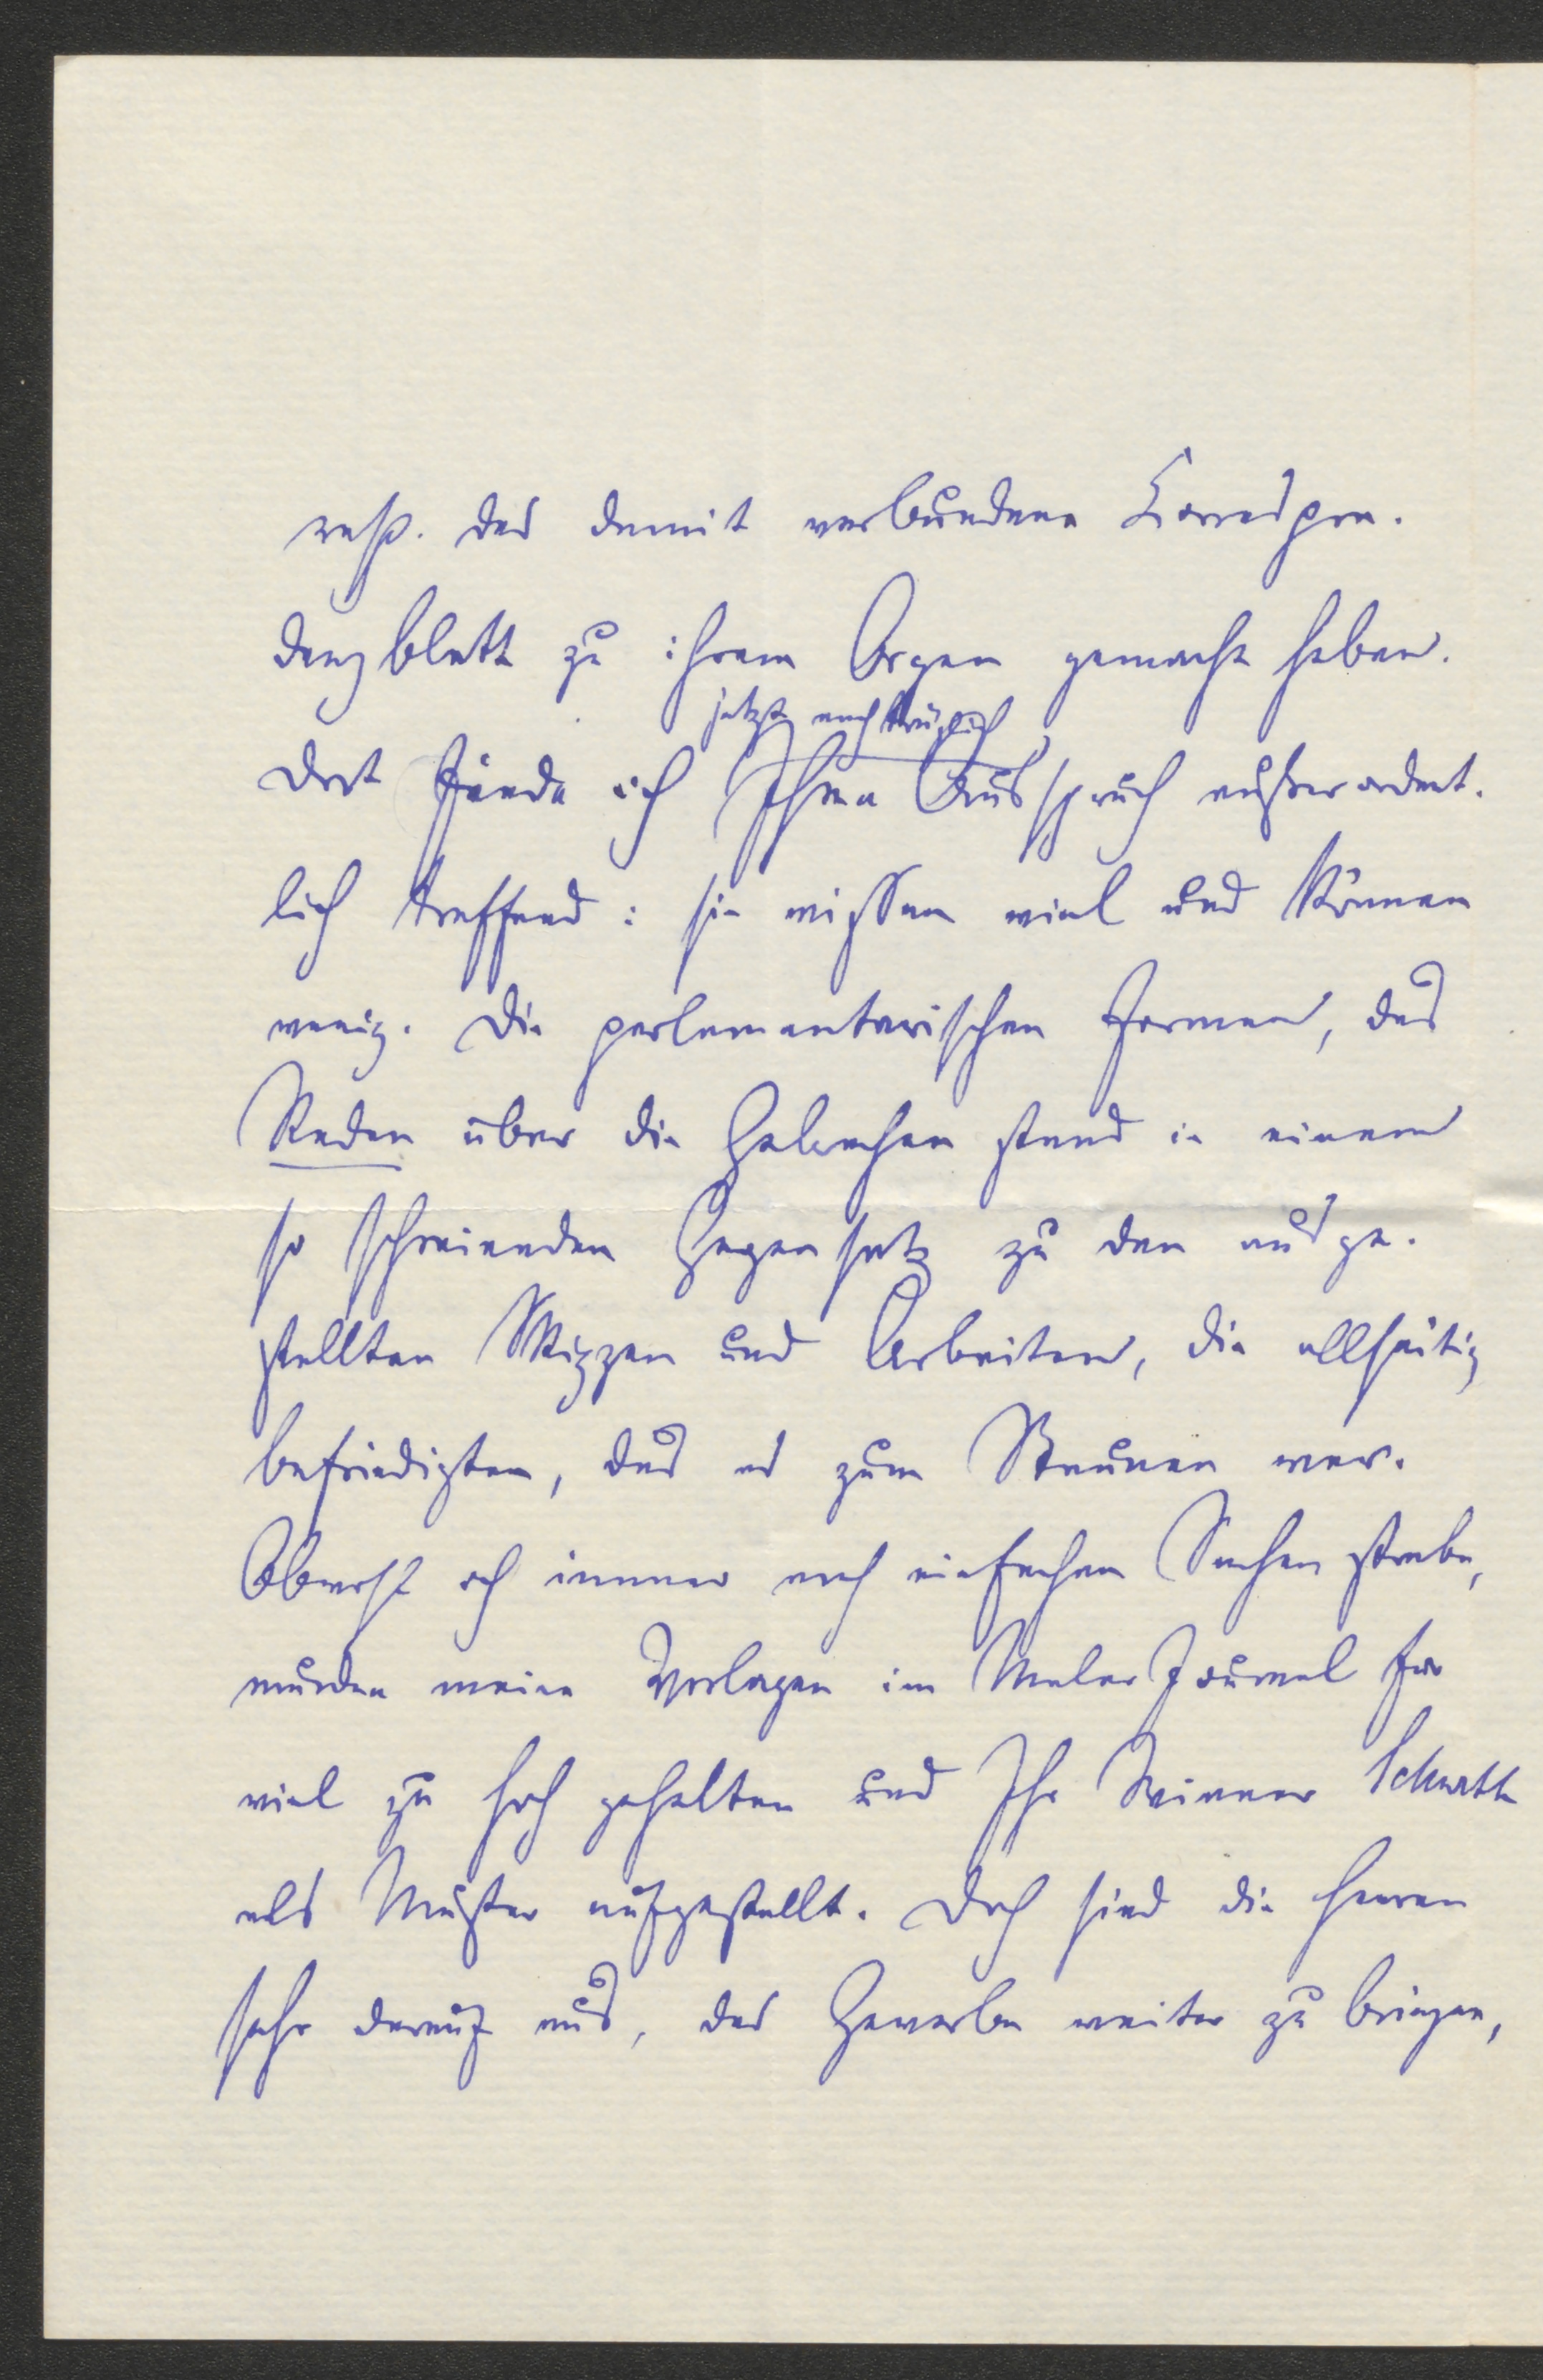 resp. das damit verbundene Correspon-
denzblatt zu ihrem Organ gemacht haben.
jetzt nachträglich
Dort fände ich Ihren Ausspruch außerordent-
lich treffend: sie wissen viel und können
wenig. Die parlamentarischen Formen, das
Reden über die Gebrechen stand in einem
so schreienden Gegensatz zu den ausge-
stellten Skizzen und Arbeiten, die allseitig
befriedigten, das es zum Staunen war.
Obwohl ich immer nach einfachen Sachen strebe,
wurden meine Vorlagen im Maler Journal für
viel zu hoch gehalten und Ihr Wiener Schwatt
als Muster aufgestellt. Doch sind die Herren
sehr darauf aus, das Gewerbe weiter zu bringen,